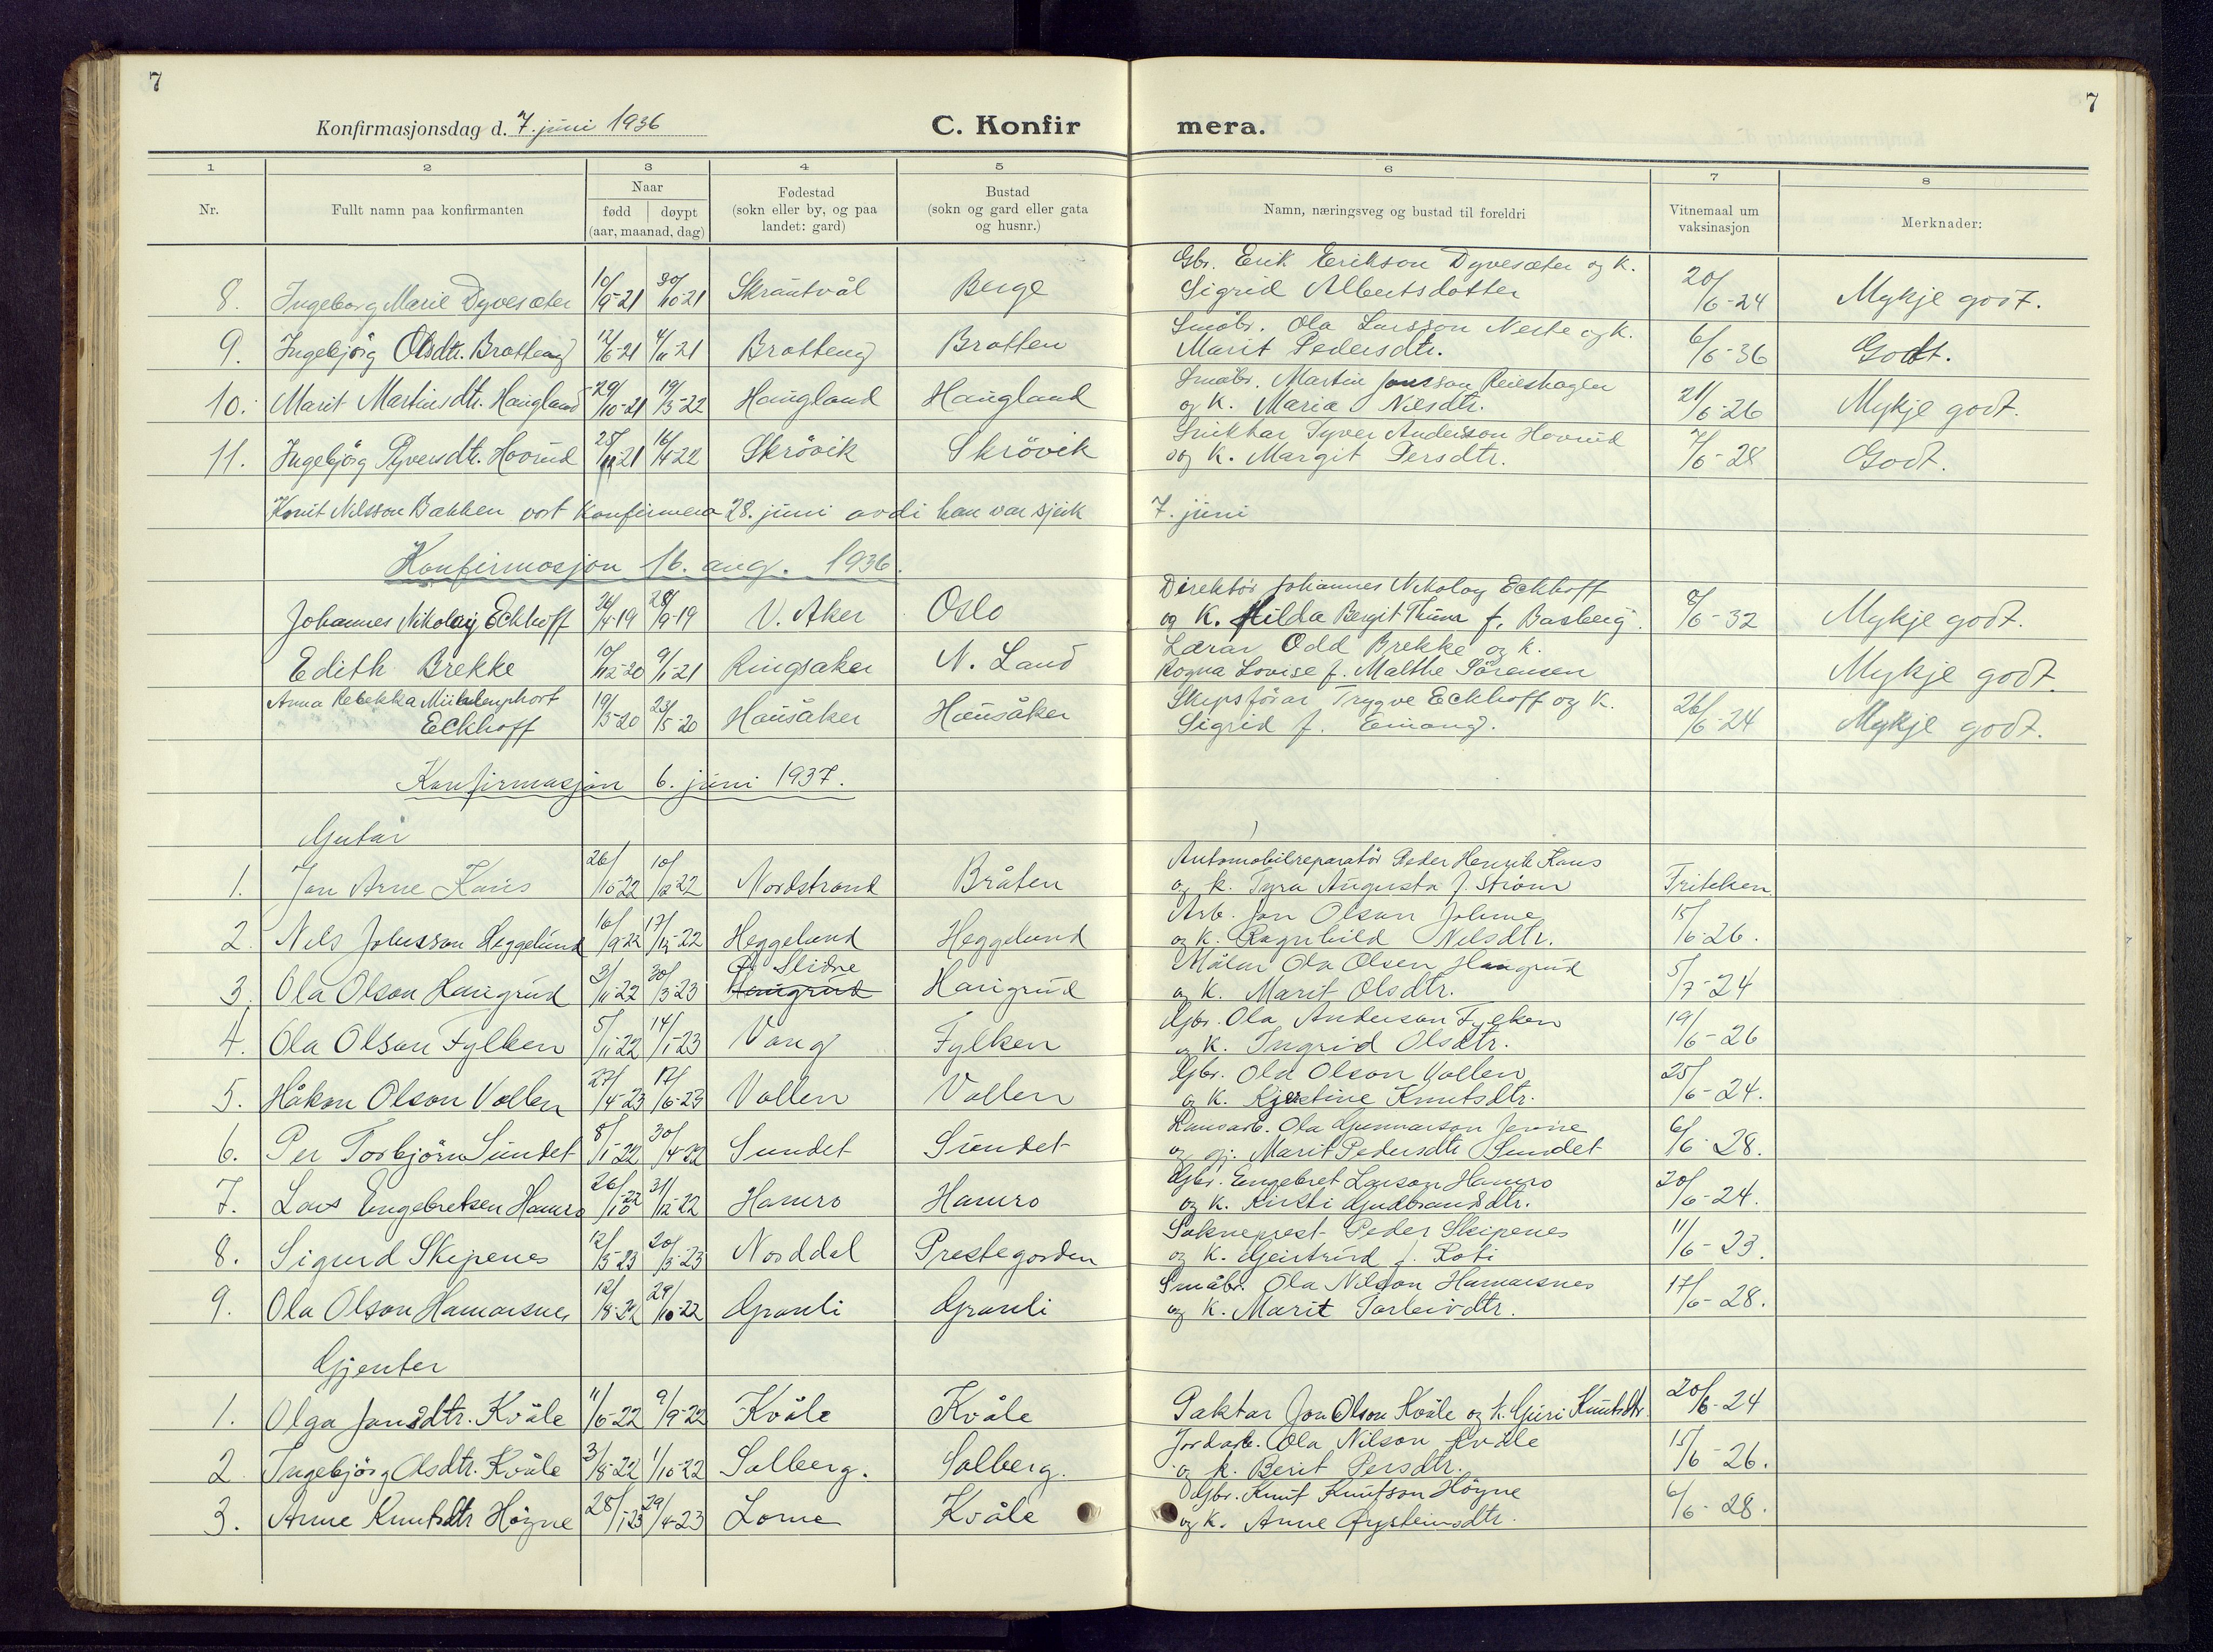 7
7
Konfirmasjonsdag d. 7. juni 1936
C. Konfirmera.
1 2 3 4 5 6 7 8
Nr.
Fullt namn paa konfirmanten
Naar
fødd døypt
(aar, maanad, dag)
Fødestad
(sokn eller by, og paa
landet: gard)
Bustad
(sokn og gard eller gata
og husnr.)
Namn, næringsveg og bustad til foreldri
Vitnemaal um
vaksinasjon
Merknader:
8. Ingeborg Marie Dyvesæter 10/9-21 30/10-21 Skrautvål Berge
Gbr. Erik Erikson Dyvesæter og k.
Sigrid Albertsdotter 20/6-24 Mykje godt.
9. Ingebjörg Olsdtr. Bratteng 12/6-21 4/11-21 Bratteng Bratten
Småbr. Ola Larsson Neste og k.
Marit Pedersdtr. 6/6-36 Godt.
10. Marit Martinsdtr. Haugland 29/10-21 19/3-22 Haugland Haugland
Småbr. Martin Jonsson
og k. Maria Nilsdtr. 21/6-26 Mykje godt.
11. Ingebjörg Syversdtr. Hovrud 28/11-21 16/4-22 Skrövik Skrövik
Snikkar Syver Anderson Hovrud
og k. Margit Persdtr. 7/6-28 Godt.
Knut Nilsson Bakken vart konfirmera 28. juni avdi han var sjuk 7. juni
Konfirmasjon 16. aug. 1936.
Johannes Nikolay Eckhoff 26/4-19 28/9-19 V. Aker Oslo
Direktör Johannes Nikolay Eckhoff
og k. Hilda Bergit Thuna f. Basberg. 8/6-32 Mykje godt.
Edith Brekke 10/12-20 9/1-21 Ringsaker N. Land
Lærar Odd Brekke og k.
Rogna Lovise f. Malthe Sörensen Mykje godt.
Anna Rebekka
Eckhoff 19/3-20 23/5-20 Hausåker Hausåker
Skipsförar Trygve Eckhoff og k.
Sigrid f. Emang. 26/6-24 Mykje godt.
Konfirmasjon 6. juni 1937.
Gutar
1. Jan Arne Kaus 26/10-22 10/12-22 Nordstrand Bråten
Automobilreparatör Peder Henrik Kaus
og k. Tyra Augusta f. Ström Fritiken
2. Nils Johnsson Heggelund 16/9-22 17/12-22 Heggelund Heggelund
Arb. Jon Olson Jolme
og k. Ragnhild Nilsdtr. 15/6-26.
3. Ola Olson Haugrud 3/11-22 30/3-23 Ø. Slidre Haugrud Haugrud
Målar Ola Olsen Haugrud
og k. Marit Olsdtr. 5/7-24
4. Ola Olson Fylken 5/11-22 14/1-23 Vang Fylken
Gbr. Ola Anderson Fylken
og k. Ingrid Olsdtr. 19/6-26
5. Håkon Olson Vollen 27/4-23 17/6-23 Vollen Vollen
Gbr. Ola Olson Vollen
og k. Kjerstine Knutsdtr. 25/6-24.
6. Per Torbjörn Sundet 8/1-22 30/4-22 Sundet Sundet
Ola Gunnarson
og gj. Marit Pedersdtr Sundet 6/6-28.
7. Lars Engebretsen Hamro 26/10-22 31/12-22 Hamro Hamro
Gbr. Engebret Larson Hamro
og k. Kirsti Gudbrandsdtr. 20/6-24.
8. Sigurd Skipenes 12/3-23 20/5-23 Norddal Prestegarden
Sokneprest Peder Skipenes
og k. Geirtrud f. Roti 11/6-23.
9. Ola Olson Hamarsnes 12/8-22 29/10-22 Granli Granli
Småbr. Ola Nilson Hamarsnes
og k. Marit Torleivdtr. 17/6-28.
Gjenter
1. Olga Jonsdtr. Kvåle 11/6-22 9/9-22 Kvåle Kvåle
Paktar Jon Olson Kvåle og k. Guri Knutsdtr. 20/6-24
2. Ingebjörg Olsdtr. Kvåle 3/8-22 1/10-22 Solberg. Solberg.
Jordarb. Ola Nilson Kvåle
og k. Berit Persdtr. 15/6-26.
3. Anne Knutsdtr Högne 28/1-23 29/4-23 Lome Kvåle
Gbr. Knut Knutson Högne
og k. Anne Øysteinsdtr. 6/6-28.